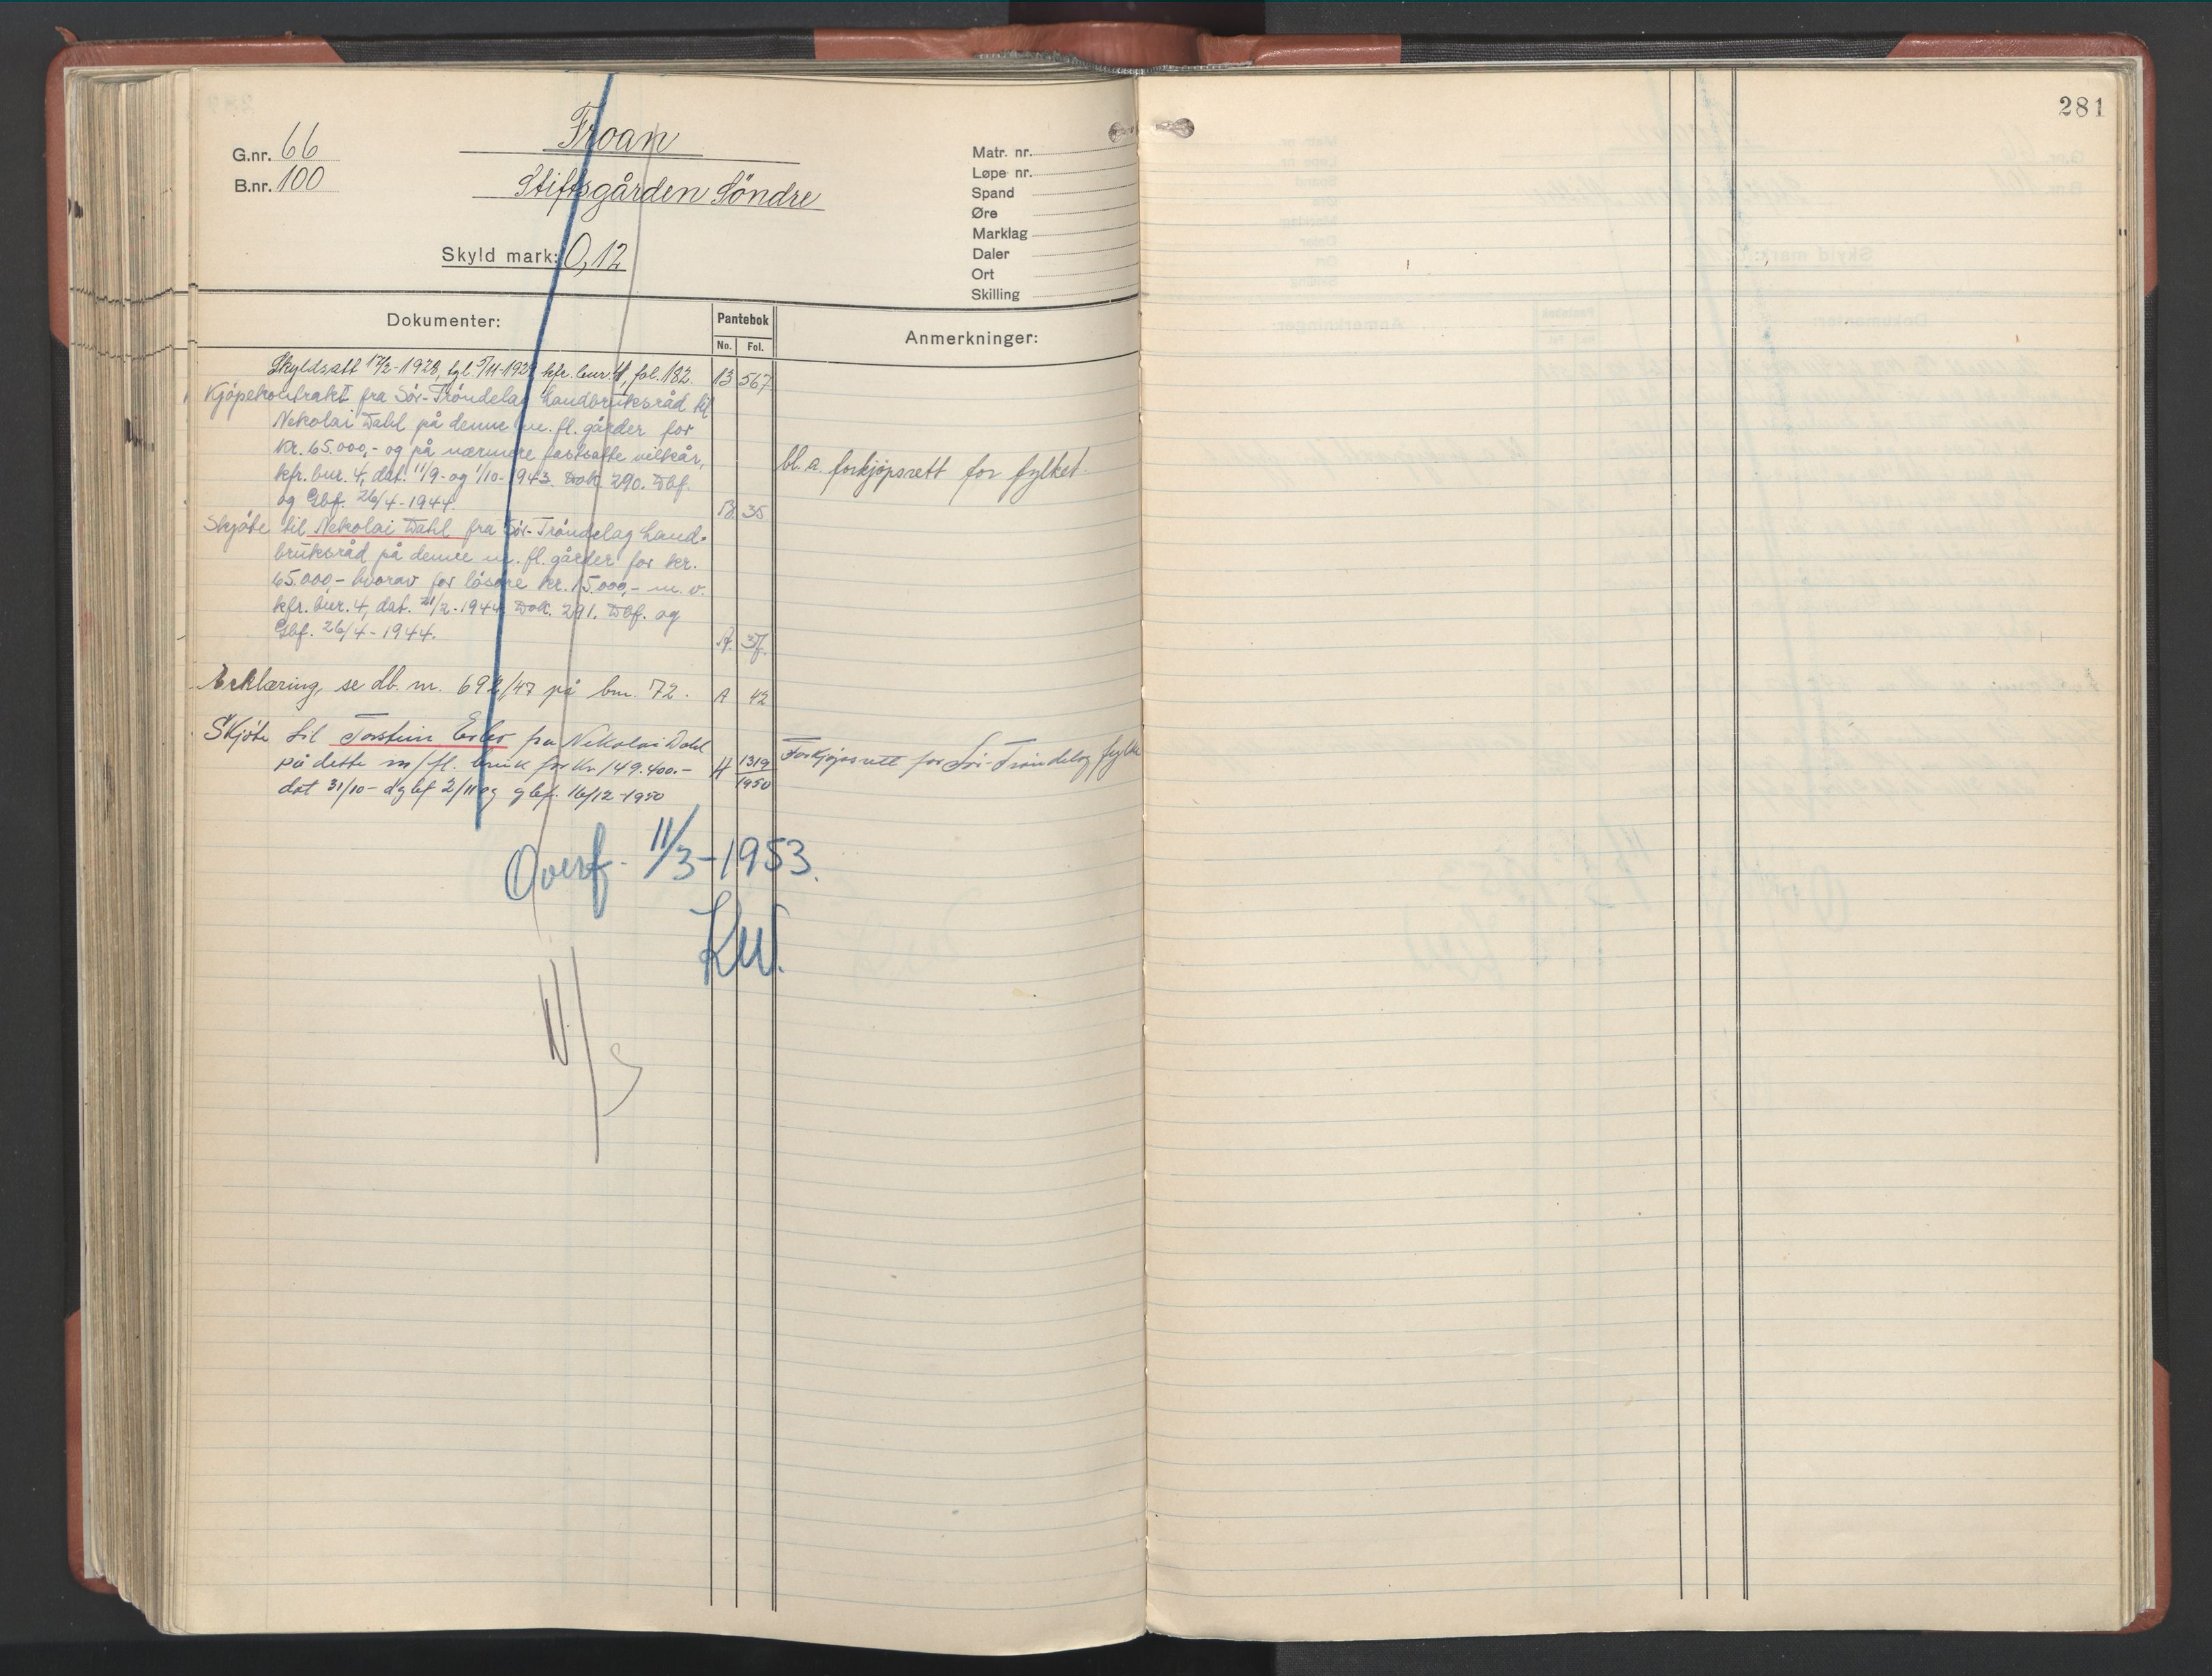 281
G.nr. 66
B.nr. 100
Froan
Stiftsgården Söndre
Skyld mark: 0,12
Matr. nr.
Løpe nr.
Spand
Øre
Marklag
Daler
Ort
Skilling
Dokumenter:
Pantebok
No. Fol.
Anmerkninger:
Skyldsatt 17/2-1928, tgl. 5/11-1929 kfr. bnr. 4, fol. 182. 13 567
Kjöpekontrakt fra Sör-Tröndelag Landbruksråd til
Nekolai Dahl på denne m. fl. gårder for
Kr. 65.000,- og på nærmere fastsatte vilkår,
kfr. bnr. 4, dat. 11/9- og 1/10-1943. Dok. 290. Dbf.
og Gbf. 26/4-1944. 35
bl. a. forkjøpsrett for fylket.
Skjöte til Nekolai Dahl fra Sör-Tröndelag Land-
bruksråd på denne m. fl. gårder for kr.
65.000- hvorav for lösöre kr. 15.000,- m. v.
kfr. bnr. 4, dat. 21/2-1944. Dok. 291. Dbf. og
Gbf. 26/4-1944. A.
Erklæring, se db. nr. 692/47 på bnr. 72. A 42
Skjöte til Torstein fra Nekolai Dahl
på dette m/fl. bruk for Kr 149.400.- H 1319
1950
dat 31/10- dgbf 2/11 og gbf. 16/12-1950
Forkjøpsrett for Sör-Tröndelag fylke
Overf. 11/3-1953.
KW.